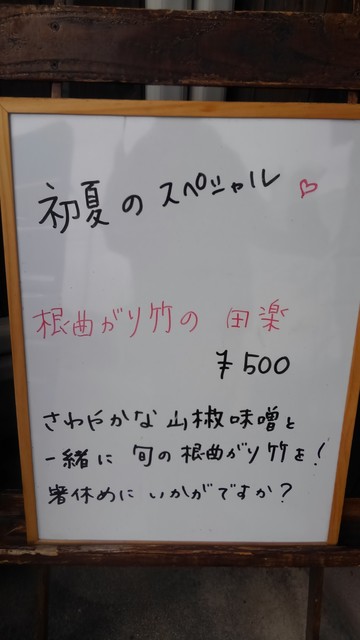 初夏のスペシャル♡
根曲がり竹の田楽
¥500
さわやかな山椒味噌と
一緒に旬の根曲がり竹を!
箸休めにいかがですか?